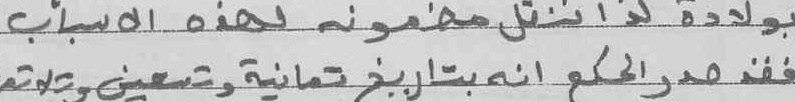 بولادة لذا ننقل مضمونه لهذه الاسباب
فقد صدر الحكم انه بتاريخ ثمانية وتسعين وثلاثة